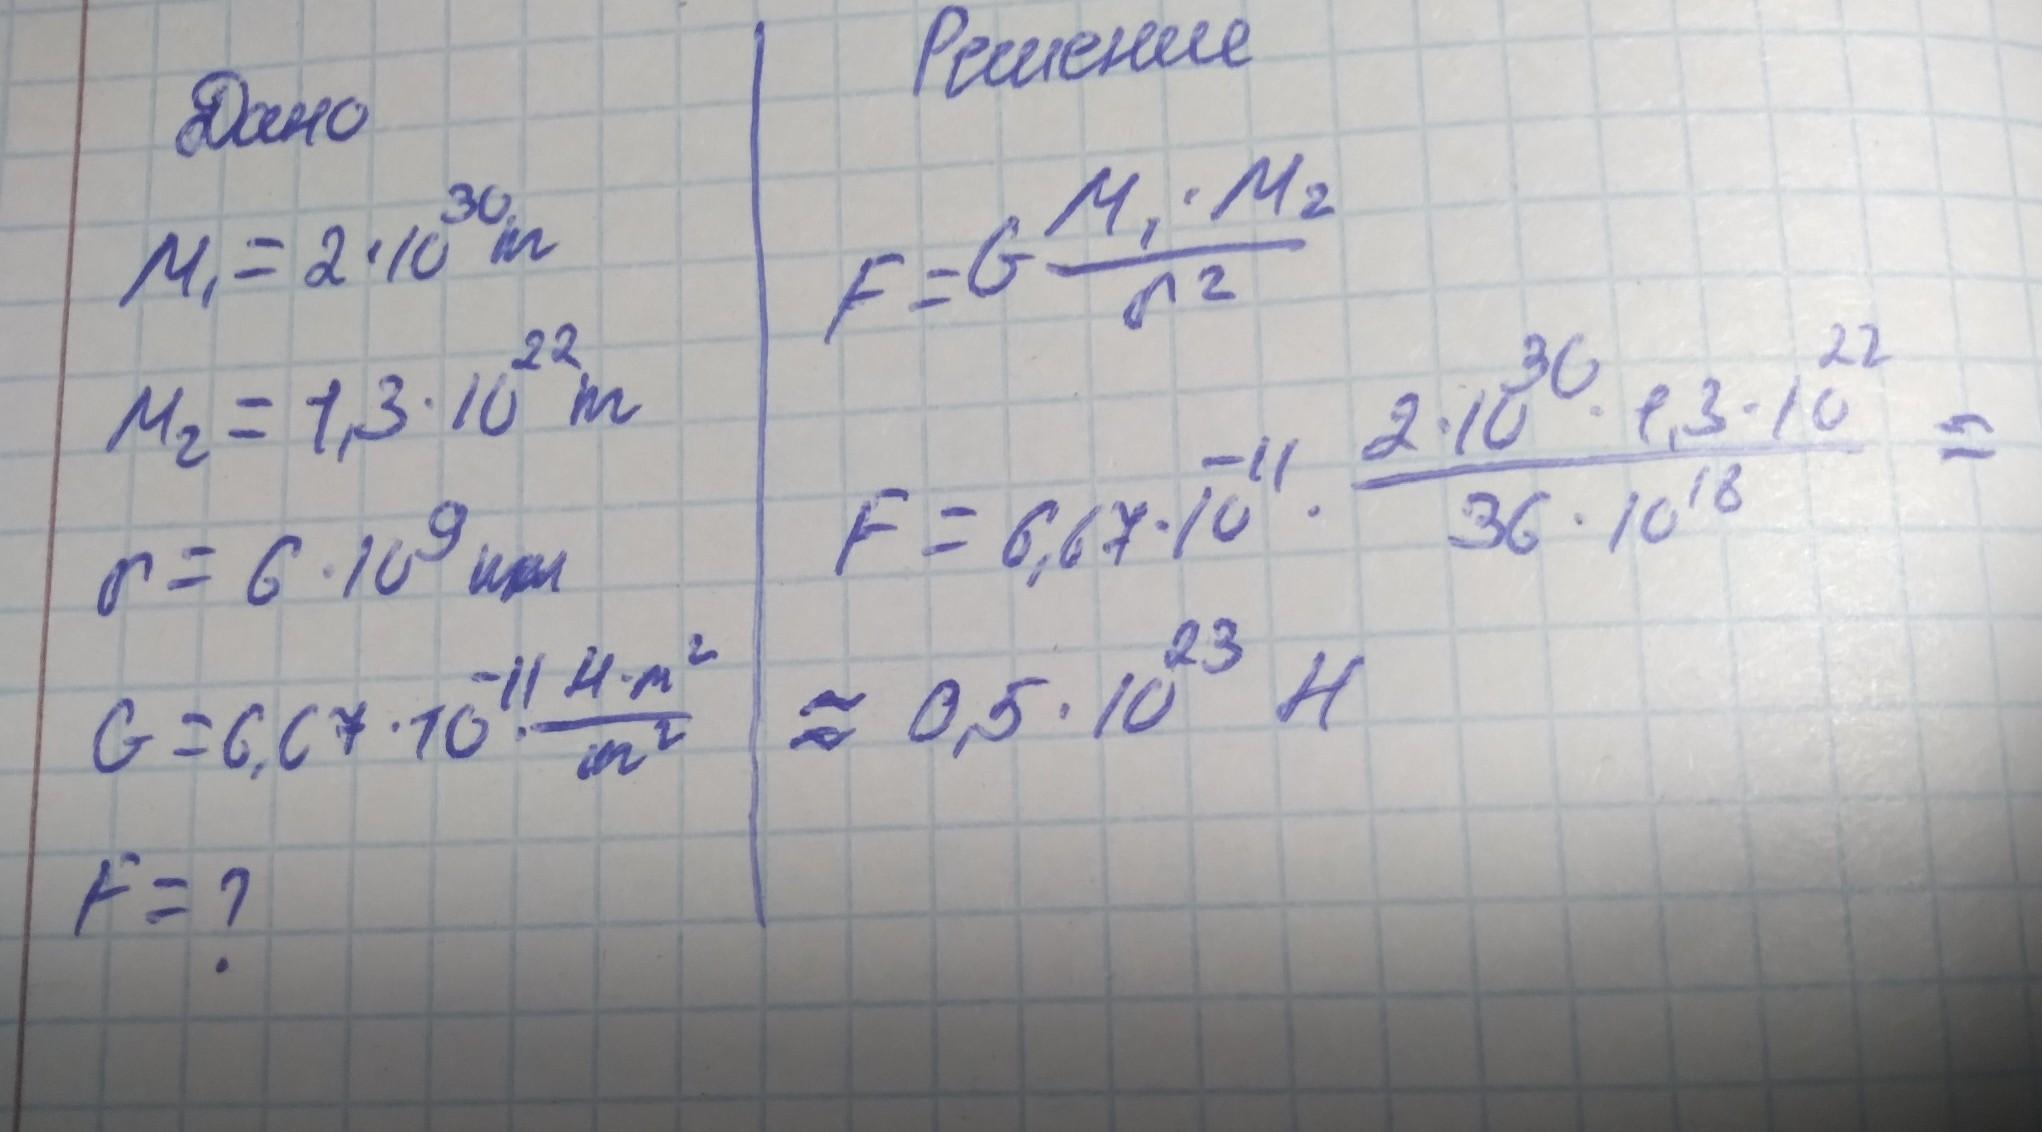 Дано
M₁ = 2·10³⁰ т
M₂ = 1,3·10²² т
r = 6·10⁹
G = 6,67·10⁻¹¹·Н·м²/т²
F = ?
Решение
F = G M₁·M₂/r²
F = 6,67·10⁻¹¹·2·10³⁰·1,3·10²²/36·10¹⁸ =
≈ 0,5·10²³ Н